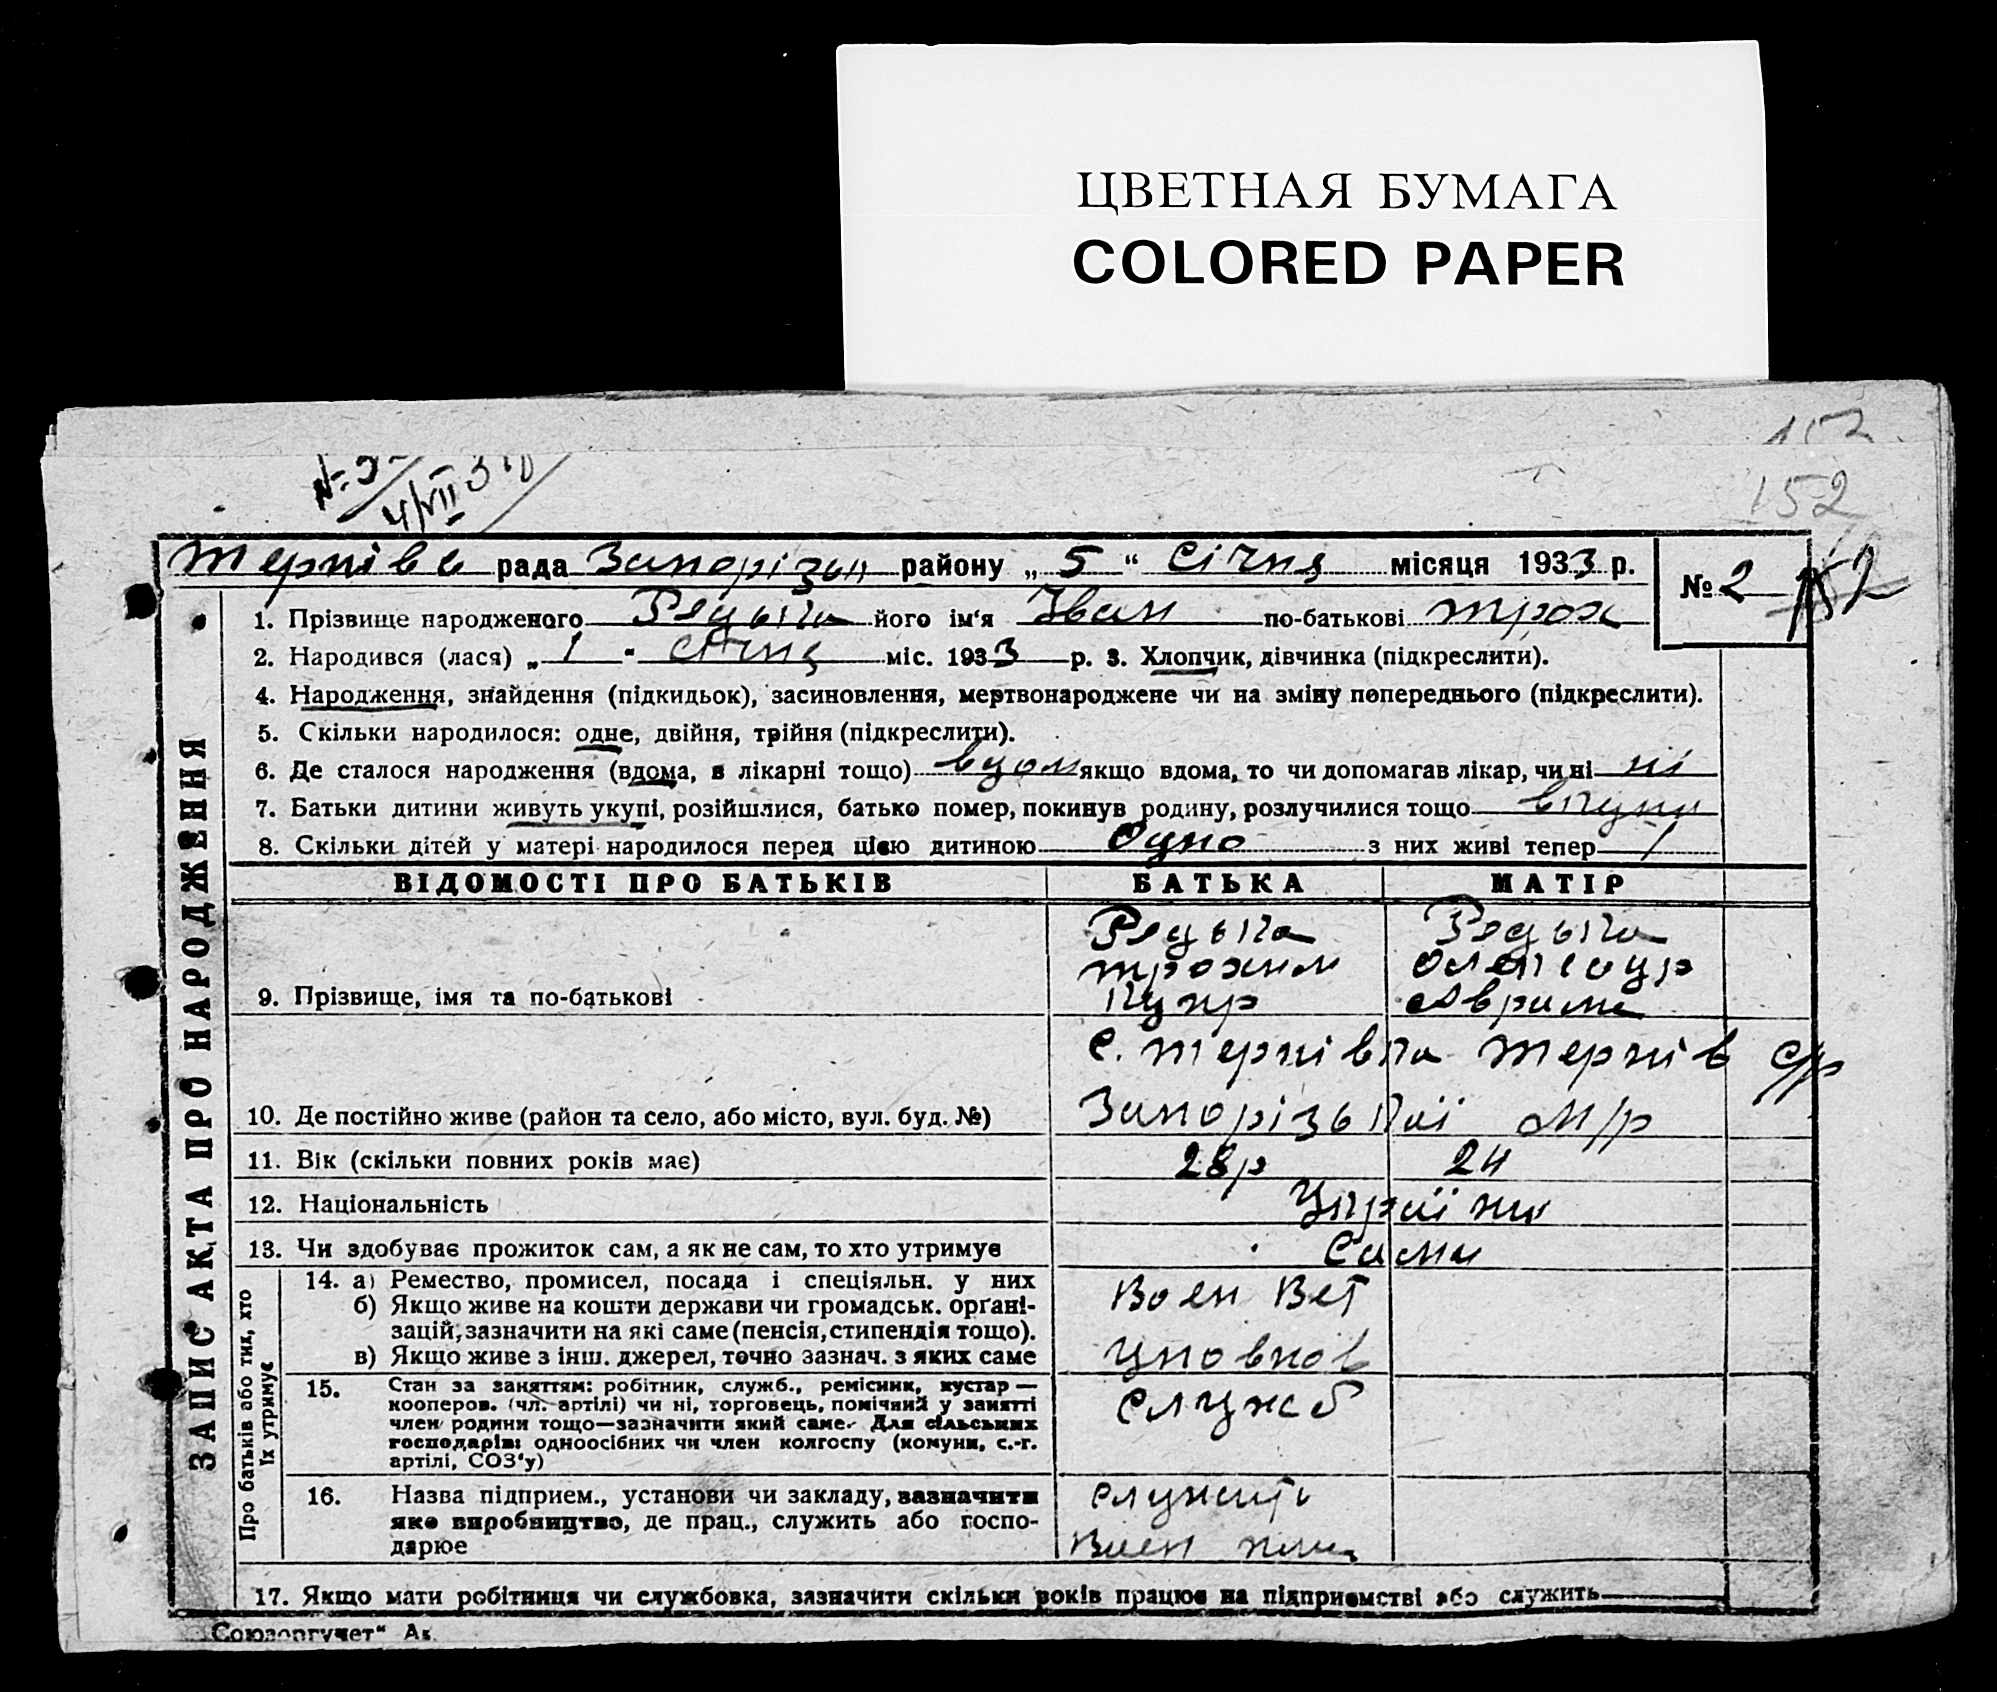 ЦВЕТНАЯ БУМАГА
COLORED PAPER
152
152
Тернівс рада Запорізьк району „ 5 “ Січня місяця 1933 р.
№ 2 152
1. Прізвище народженого Редька його ім'я Іван по-батькові Трох
2. Народився (лася) „ 1 " січня міс. 1933 р. 3. Хлопчик, дівчинка (підкреслити).
4. Народження, знайдення (підкидьок), засиновлення, мертвонароджене чи на зміну попереднього (підкреслити).
5. Скільки народилося: одне, двійня, трійня (підкреслити).
6. Де сталося народження (вдома, в лікарні тощо) вдом якщо вдома, то чи допомагав лікар, чи ні ні
7. Батьки дитини живуть укупі, розійшлися, батько помер, покинув родину, розлучилися тощо вкупи
8. Скільки дітей у матері народилося перед цією дитиною одно з них живі тепер 1
ЗАПИС АКТА ПРО НАРОДЖЕННЯ
ВІДОМОСТІ ПРО БАТЬКІВ БАТЬКА МАТІР
Редька Редька
Трохим Олександр
9. Прізвище, імя та по-батькові Аврам
с. Тернівка Тернів с/р
10. Де постійно живе (район та село, або місто, вул. буд. №) Запорізької м/р
11. Вік (скільки повних років має) 28р 24
12. Національність Україн
13. Чи здобуває прожиток сам, а як не сам, то хто утримує Сами
Про батьків або тих, хто їх утримує
14. а) Ремество, промисел, посада і спеціяльн. у них Воен Вет
б) Якщо живе на кошти держави чи громадськ. органі-
зацій, зазначити на які саме (пенсія, стипендія тощо).
в) Якщо живе з інш. джерел, точно зазнач. з яких саме
15. Стан за заняттям: робітник, служб., ремісник, кустар —
кооперов. (чл. артілі) чи ні, торговець, помічний у занятті
член родини тощо—зазначити який саме. Для сільських
господарів: одноосібних чи член колгоспу (комуни, с.-г.
артілі, СОЗ'у)
Служб
16. Назва підприєм., установи чи закладу, зазначити служить
яке виробництво, де прац., служить або госпо-
дарює Воен
17. Якщо мати робітниця чи службовка, зазначити скільки років працює на підприємстві або служить
„Союзоргучет“